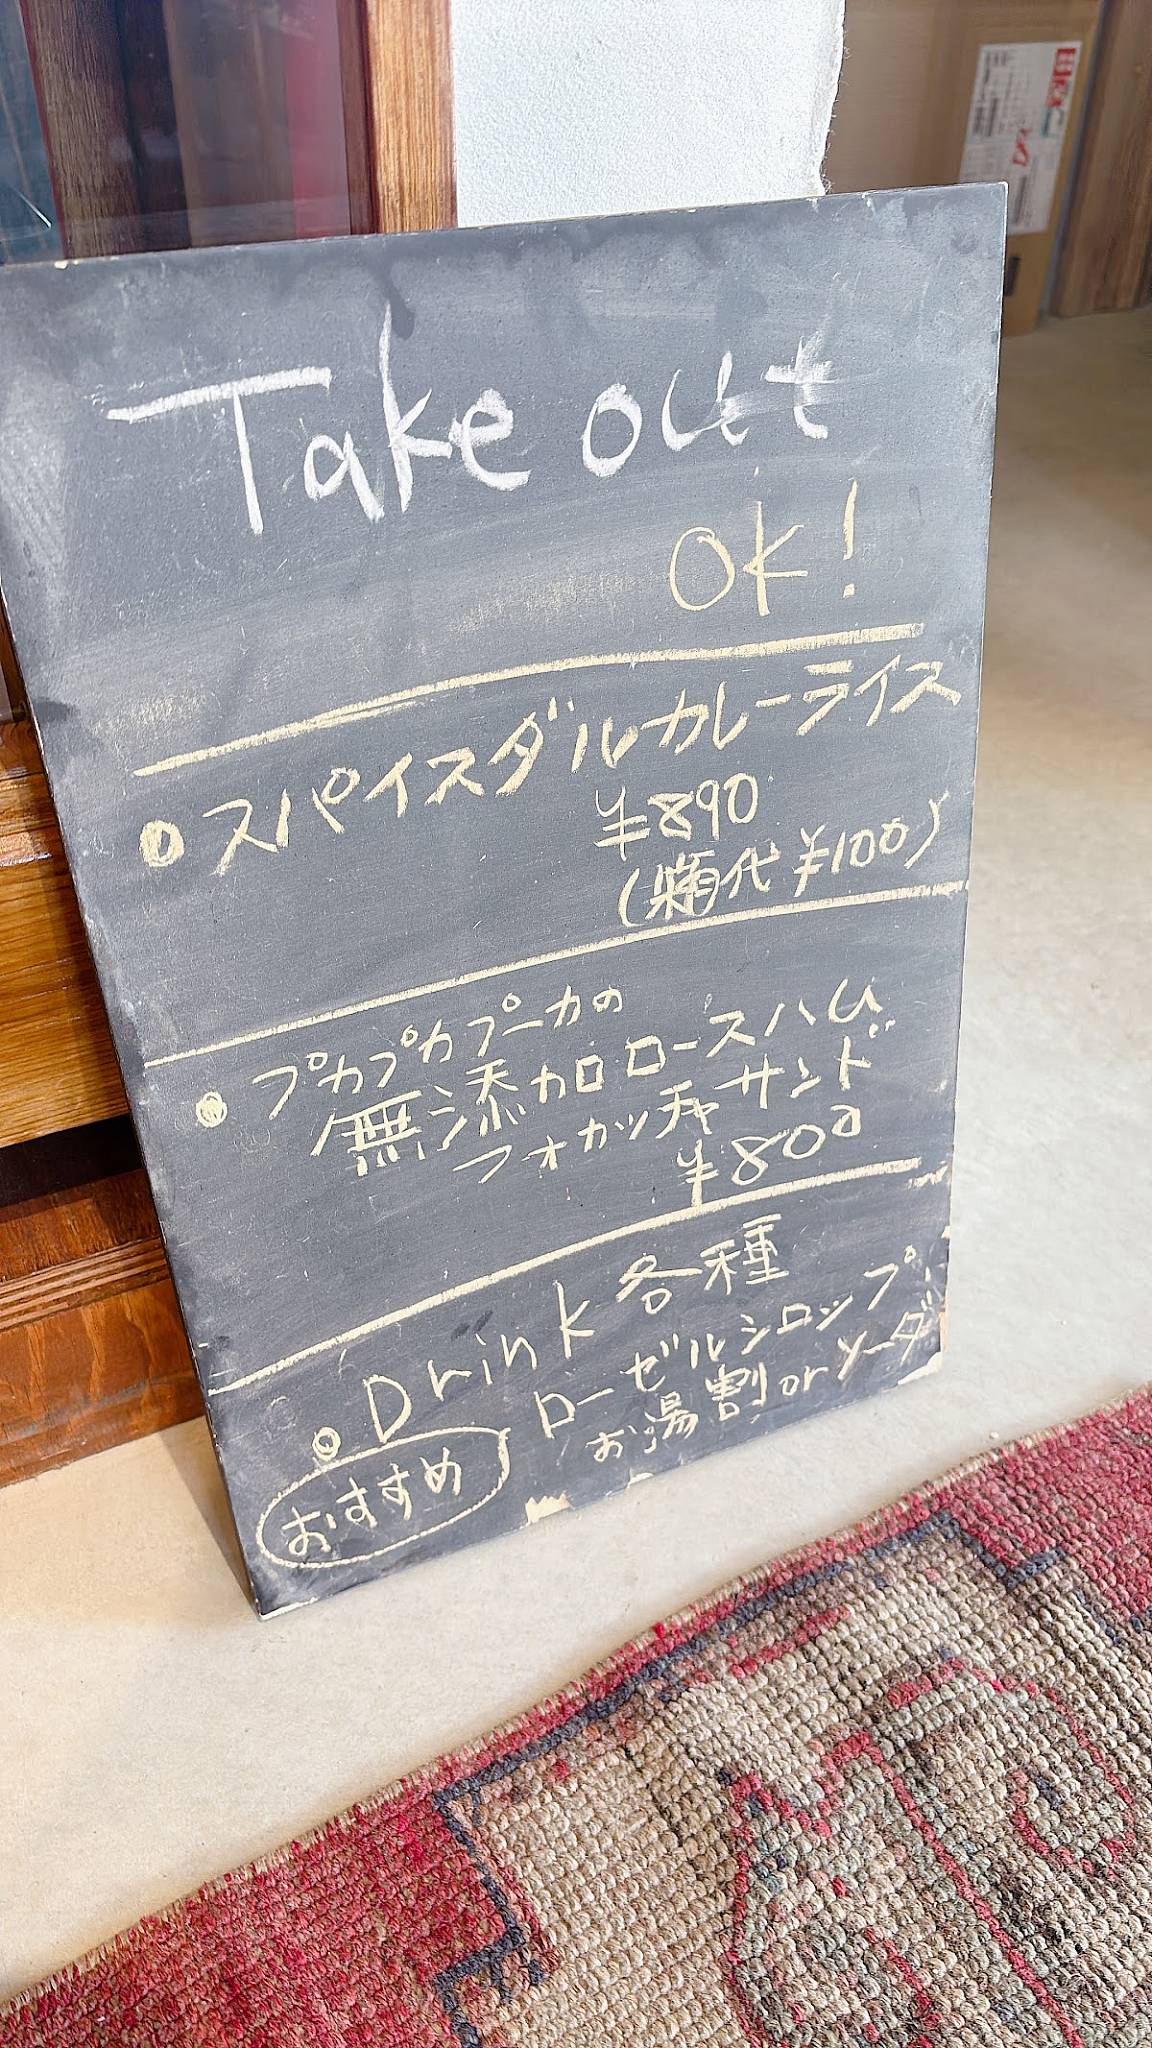 Take out
OK!
スパイスダルカレーライス
¥890
(箱代 ¥100)
プカプカプーカの
無添加ロースハム
フォカッチャサンド
¥800
Drink 各種
おすすめ
ローゼルシロップ
お湯割 or ソーダ